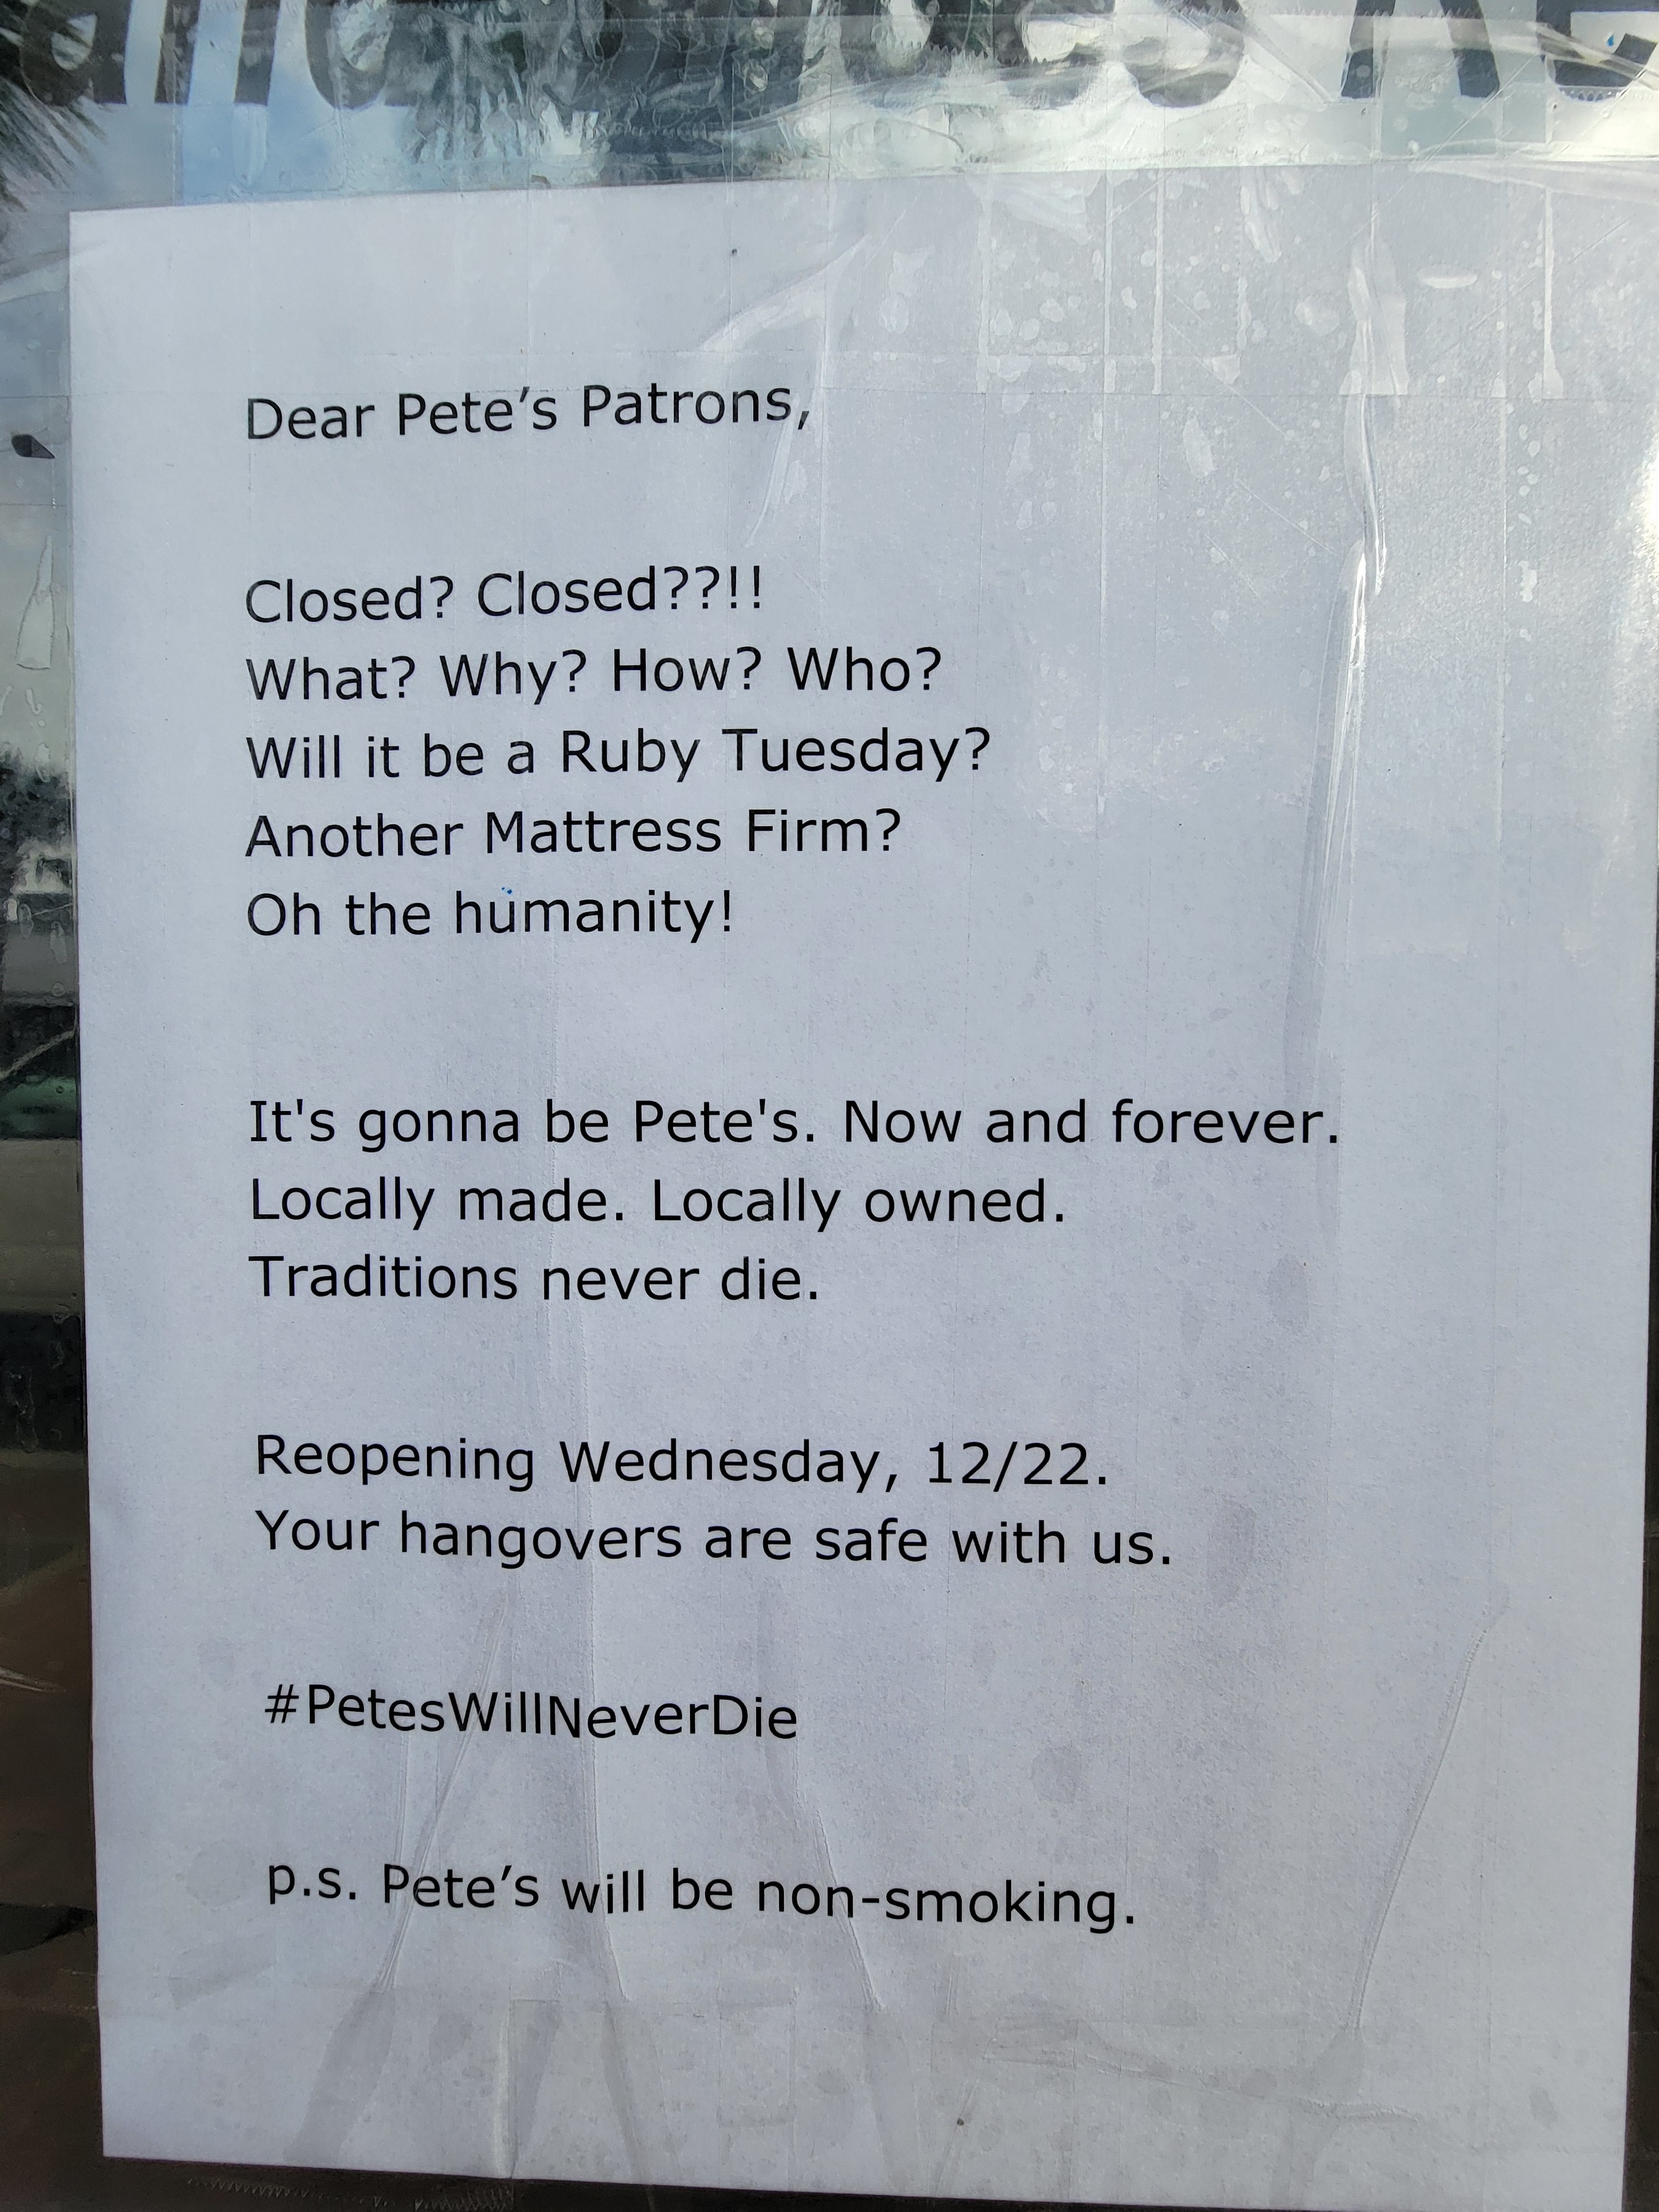 Dear Pete’s Patrons,
Closed? Closed??!!
What? Why? How? Who?
Will it be a Ruby Tuesday?
Another Mattress Firm?
Oh the humanity!
It's gonna be Pete's. Now and forever.
Locally made. Locally owned.
Traditions never die.
Reopening Wednesday, 12/22.
Your hangovers are safe with us.
#PetesWillNeverDie
p.s. Pete’s will be non-smoking.